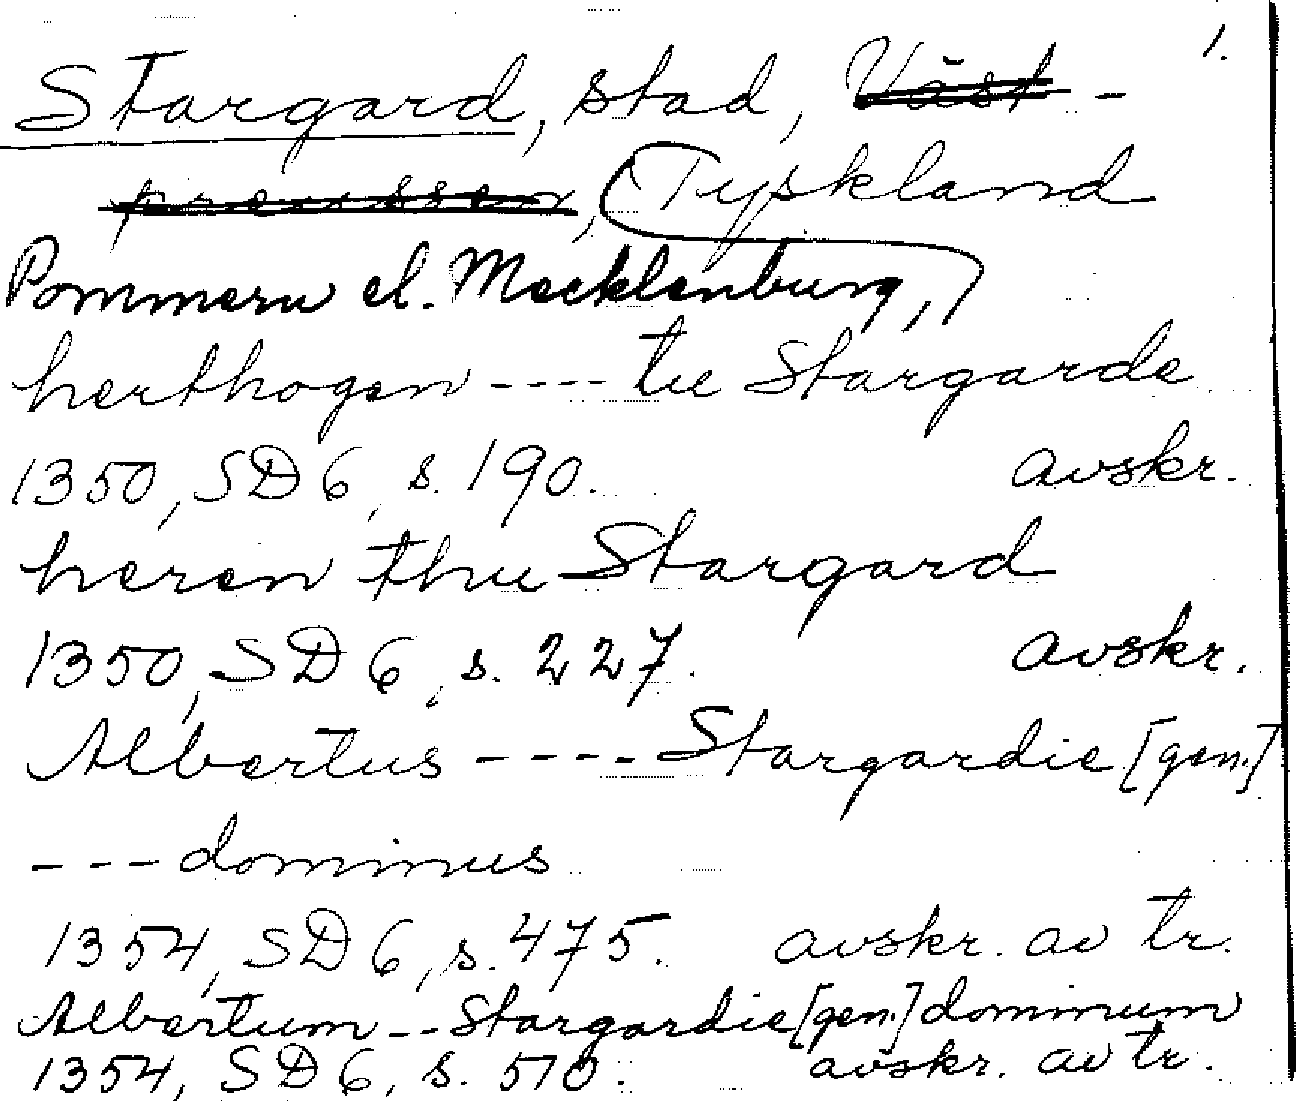 1.
Stargard, stad, Väst-
preussen, (Tyskland
Pommern el. Mecklenburg,)
herthogen ---- tie Stargarde
1350, SD 6, s. 190. avskr.
heren thu Stargard
1350, SD 6, s. 227. avskr.
Albertus ---- Stargardie [gen.]
--- dominus
1354, SD 6, s. 475. avskr. av tr.
Albertum -- Stargardie [gen.] dominum
1354, SD 6, s. 510. avskr. av tr.